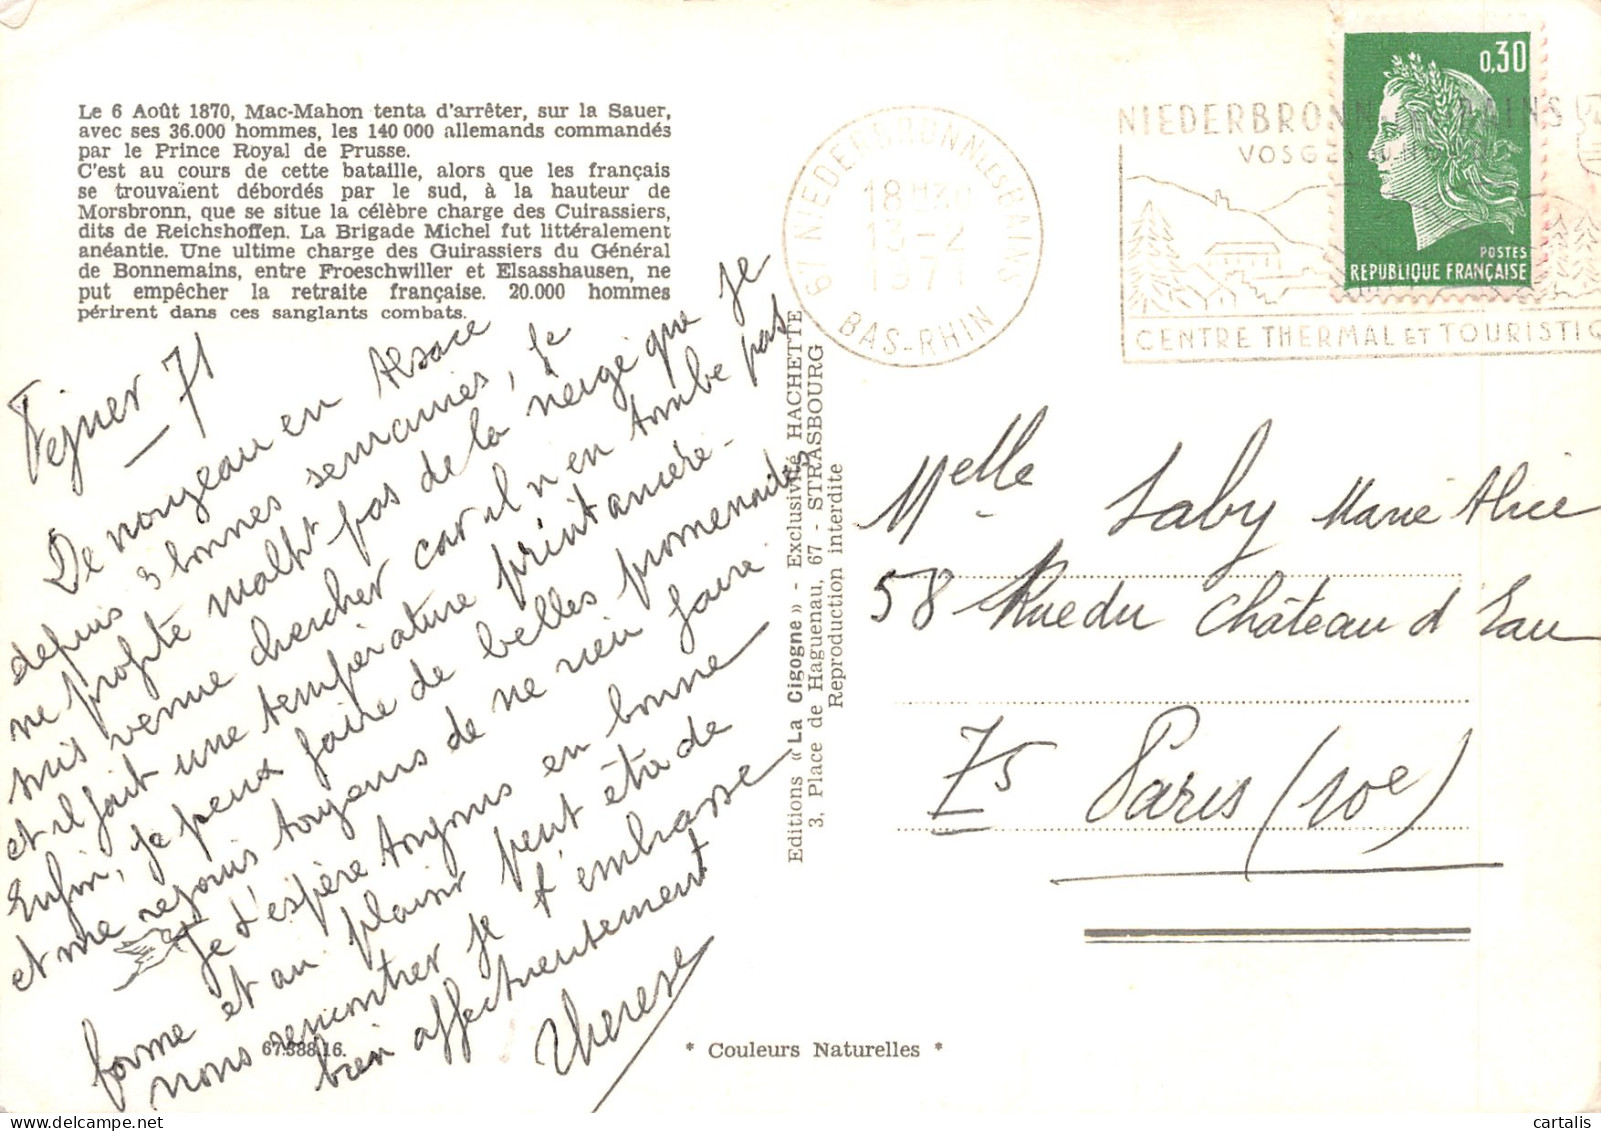 Le 6 Août 1870, Mac-Mahon tenta d'arrêter, sur la Sauer,
avec ses 36.000 hommes, les 140 000 allemands commandés
par le Prince Royal de Prusse.
C'est au cours de cette bataille, alors que les français
se trouvaient débordés par le sud, à la hauteur de
Morsbronn, que se situe la célèbre charge des Cuirassiers,
dits de Reichshoffen. La Brigade Michel fut littéralement
anéantie. Une ultime charge des Guirassiers du Général
de Bonnemains, entre Froeschwiller et Elsasshausen, ne
put empêcher la retraite française. 20.000 hommes
périrent dans ces sanglants combats.
71
De nouveau en Alsace
depuis 3 bonnes semaines, je
ne profite pas de la neige que je
suis venue chercher car il n'en tombe pas
et il fait une température printanière -
Enfin, je peux faire de belles promenades
et me réjouis toujours de ne rien faire
Je t'espère toujours en bonne
forme et au plaisir peut être de
nous rencontrer je t'embrasse
bien affectueusement
Therese
67.388.16.
* Couleurs Naturelles *
Editions « La Cigogne » - Exclusivité HACHETTE
3, Place de Haguenau, 67 - STRASBOURG
Reproduction interdite
67 NIEDERBRONN LES BAINS
18H30
13-2
1971
BAS-RHIN
NIEDERBRONN BAINS
VOSGES
CENTRE THERMAL ET TOURISTIQ
0,30
POSTES
REPUBLIQUE FRANÇAISE
Melle Saby Marie Alice
58 Rue du Château d'Eau
75 Paris (10e)
cartalis